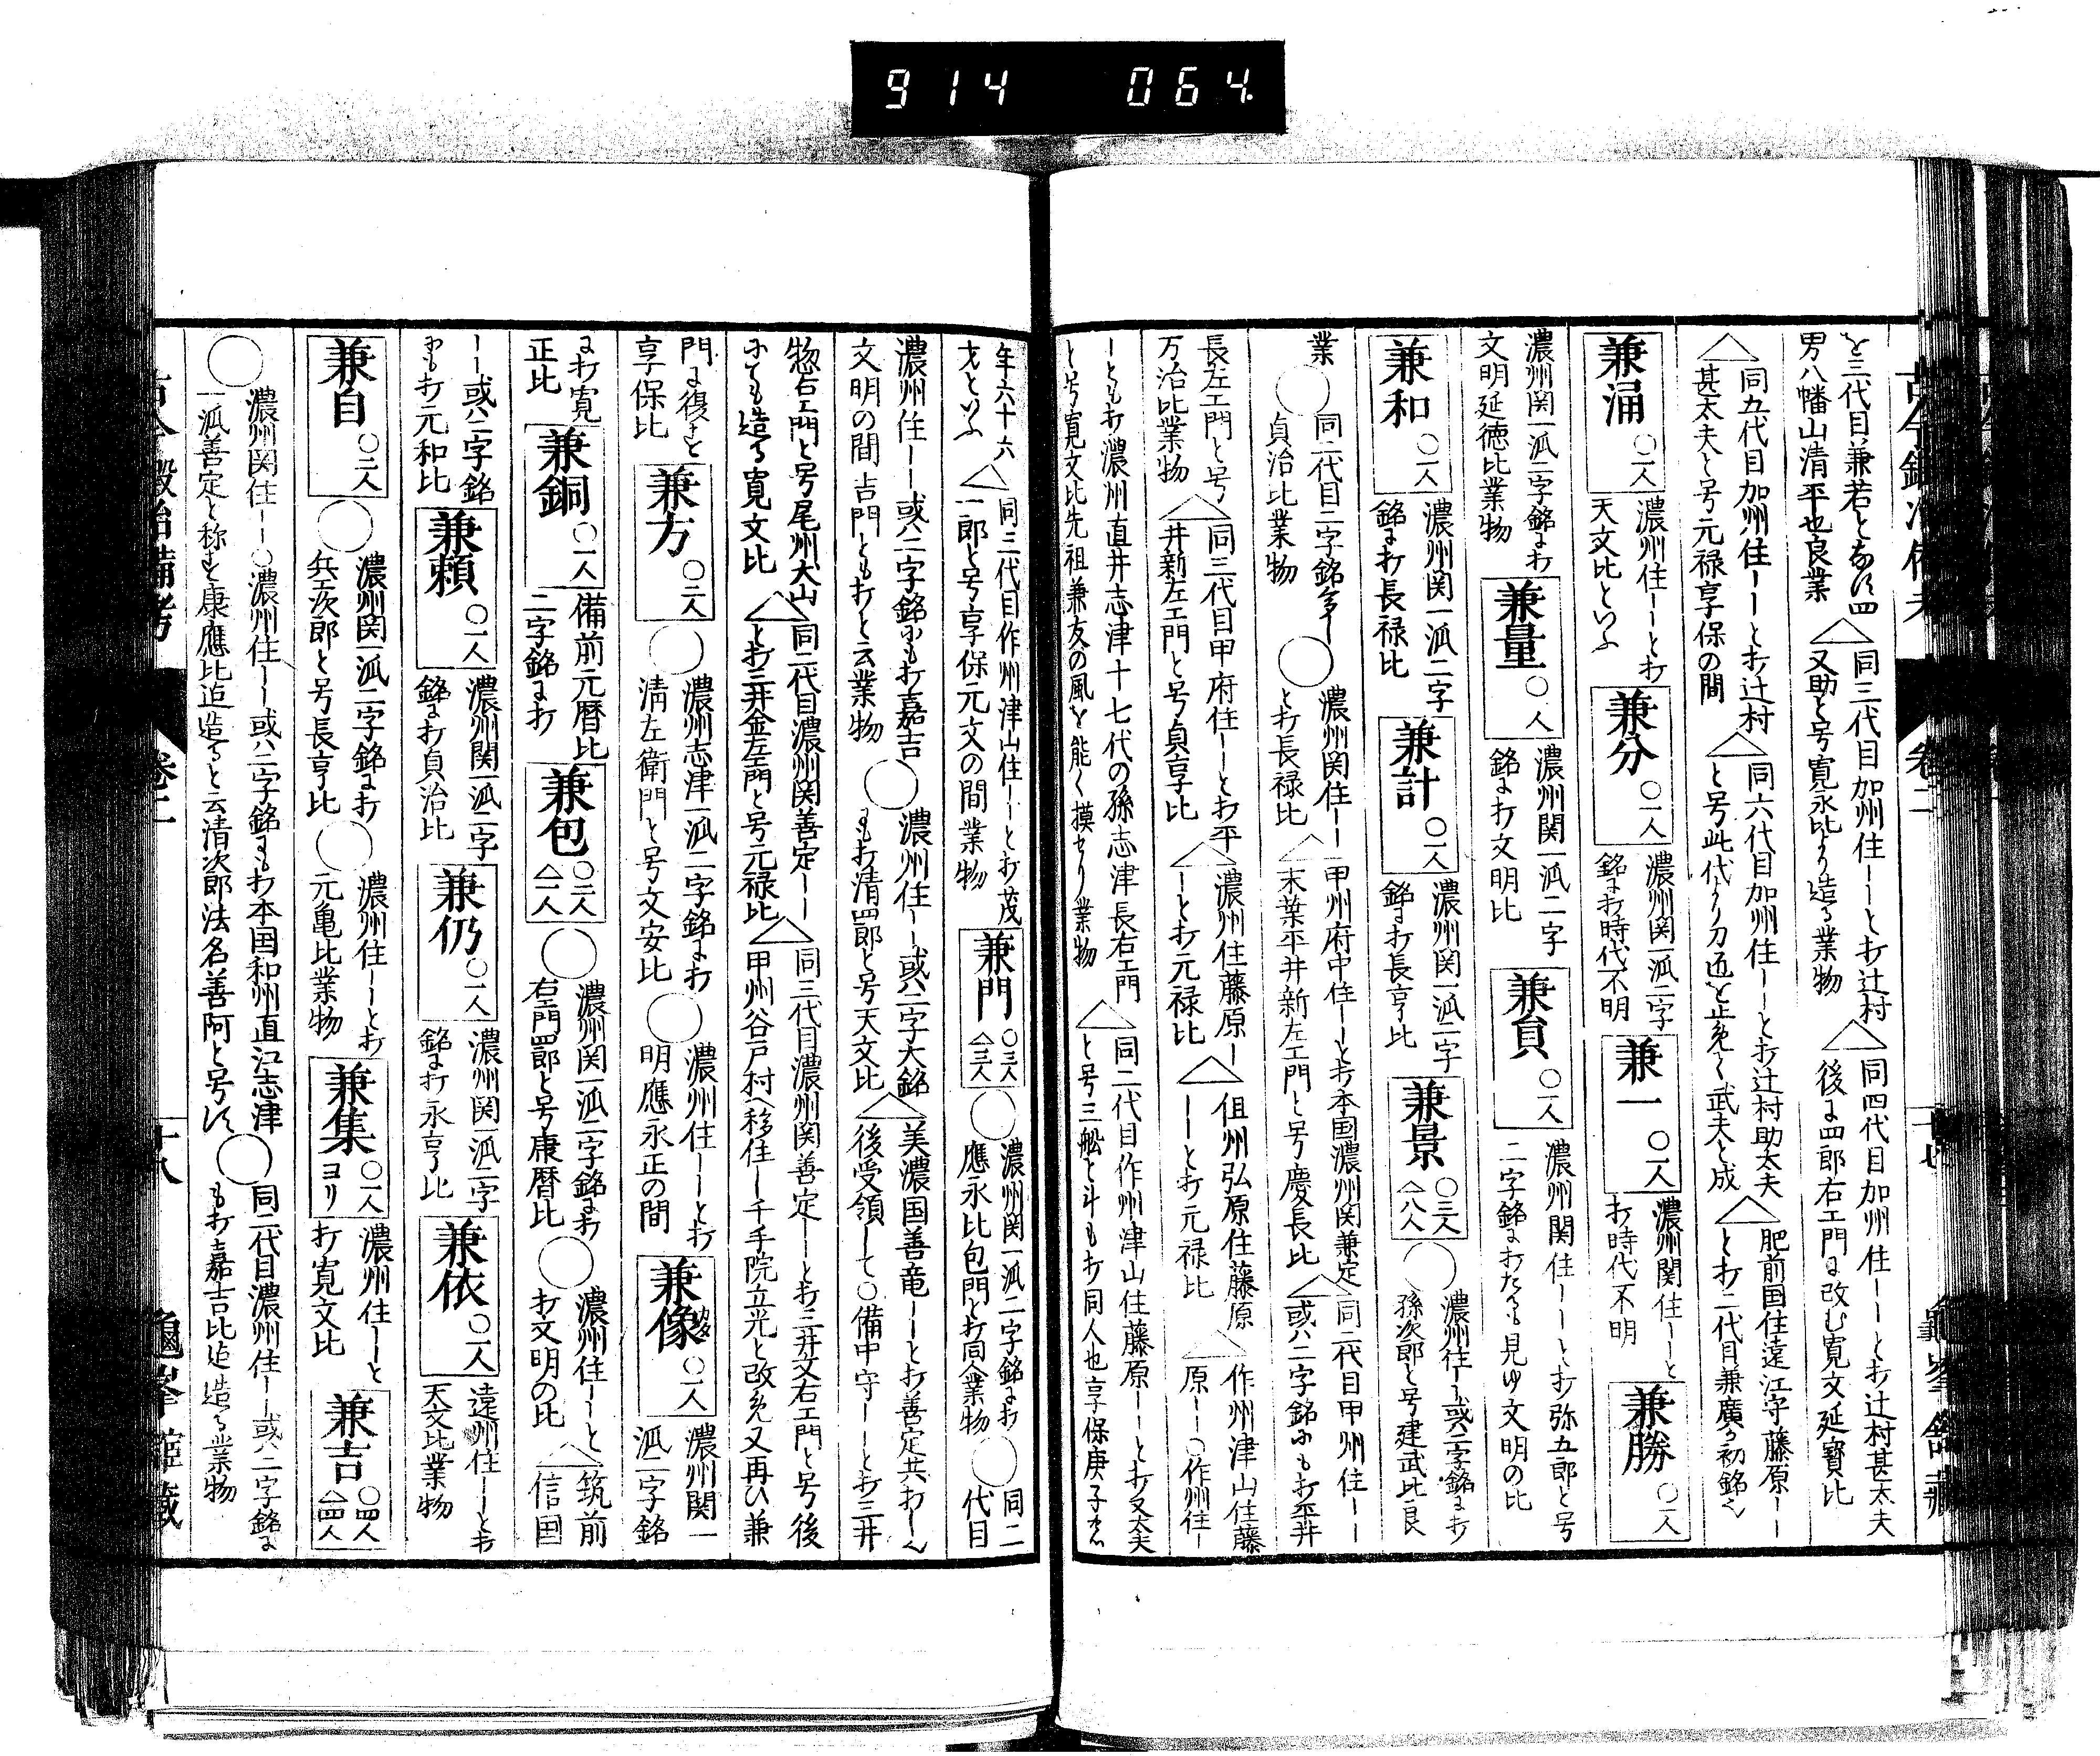 914 064.
を三代目兼若となす四
男八幡山清平也良業
△同三代目加州住ーーと打辻村
又助と号寛永比より造る業物
△同四代目加州住ーーと打辻村甚太夫
後に四郎右エ門に改む寛文延寳比
△同五代目加州住ーーと打辻村
甚太夫と号元禄享保の間
△同六代目加州住ーーと打辻村助太夫
と号此代より刀匠を止免く武夫と成
△肥前国住遠江守藤原ー
と打二代目兼廣の初銘也
兼涌 〇一人
濃州住ーーと打
天文比といふ
兼分 〇一人
濃州関一派二字
銘に打時代不明
兼一 〇一人
濃州関住ーーと
打時代不明
兼勝 〇二人
濃州関一派二字銘に打
文明延徳比業物
兼量 〇一人
濃州関一派二字
銘に打文明比
兼負 〇一人
濃州関住ーーと打弥五郎と号
二字銘に打たるも見ゆ文明の比
兼和 〇一人
濃州関一派二字
銘に打長禄比
兼計 〇一人
濃州関一派二字
銘に打長亨比
兼景 〇三人 △八人
〇濃州住ーー或ハ二字銘に打
孫次郎と号建武比良
業
〇同二代目二字銘多し
貞治比業物
〇濃州関住ーー
と打長禄比
△甲州府中住ーーと打本国濃州関兼定
末葉平井新左エ門と号慶長比
△同二代目甲州住ーー
或ハ二字銘にも打平井
長左エ門と号
万治比業物
△同三代目甲府住ーーと打平
井新左エ門と号貞享比
△濃州住藤原ー
ーと打元禄比
△但州弘原住藤原
ーーと打元禄比
△作州津山住藤
原ーー〇作州住ー
ーとも打濃州直井志津十七代の孫志津長右エ門
と号寛文比先祖兼友の風を能く摸せり業物
△同二代目作州津山住藤原ーーと打又太夫
と号三舩と斗も打同人也享保庚子
年六十六
才といふ
△同三代目作州津山住ーーと打茂
二郎と号享保元文の間業物
兼門 〇三人 △三人
〇濃州関一派二字銘に打
應永比包門と打同人業物
〇同二
代目
濃州住ーー或ハ二字銘にも打嘉吉
文明の間吉門とも打と云業物
〇濃州住ーー或ハ二字大銘
にも打清四郎と号天文比
△美濃国善竜ーーと打善定共打し
後受領して〇備中守ーーと打三井
惣右エ門と号尾州犬山
にても造る寛文比
△同二代目濃州関善定ーー
と打三井金左エ門と号元禄比
△同三代目濃州関善定ーーと打三井文右エ門と号後
甲州谷戸村へ移住し千手院立光と改免又再ひ兼
門に復すと
享保比
兼方 〇二人
〇濃州志津一派二字銘に打
清左衛門と号文安比
〇濃州住ーーと打
明應永正の間
兼像 〇一人
濃州関一
派二字銘
に打寛
正比
兼銅 〇一人
備前元暦比
二字銘に打
兼包 〇二人 △一人
〇濃州関一派二字銘に打
右エ門四郎と号康暦比
〇濃州住ーーと
打文明の比
△筑前
信国
ーー或ハ二字銘
にも打元和比
兼頼 〇一人
濃州関一派二字
銘に打貞治比
兼仍 〇一人
濃州関一派二字
銘に打永亨比
兼依 〇一人
遠州住ーーと打
天文比業物
兼自 〇二人
〇濃州関一派二字銘に打
兵次郎と号長亨比
〇濃州住ーーと打
元亀比業物
兼集 ヨリ 〇一人
濃州住ーーと
打寛文比
兼吉 〇四人 △四人
〇濃州関住ーー〇濃州住ーー或ハ二字銘にも打本国和州直江志津
一派善定と称す康應比迄造ると云清次郎法名善阿と号す
〇同二代目濃州住ーー或ハ二字銘に
も打嘉吉比迄造る業物
卷二
十八